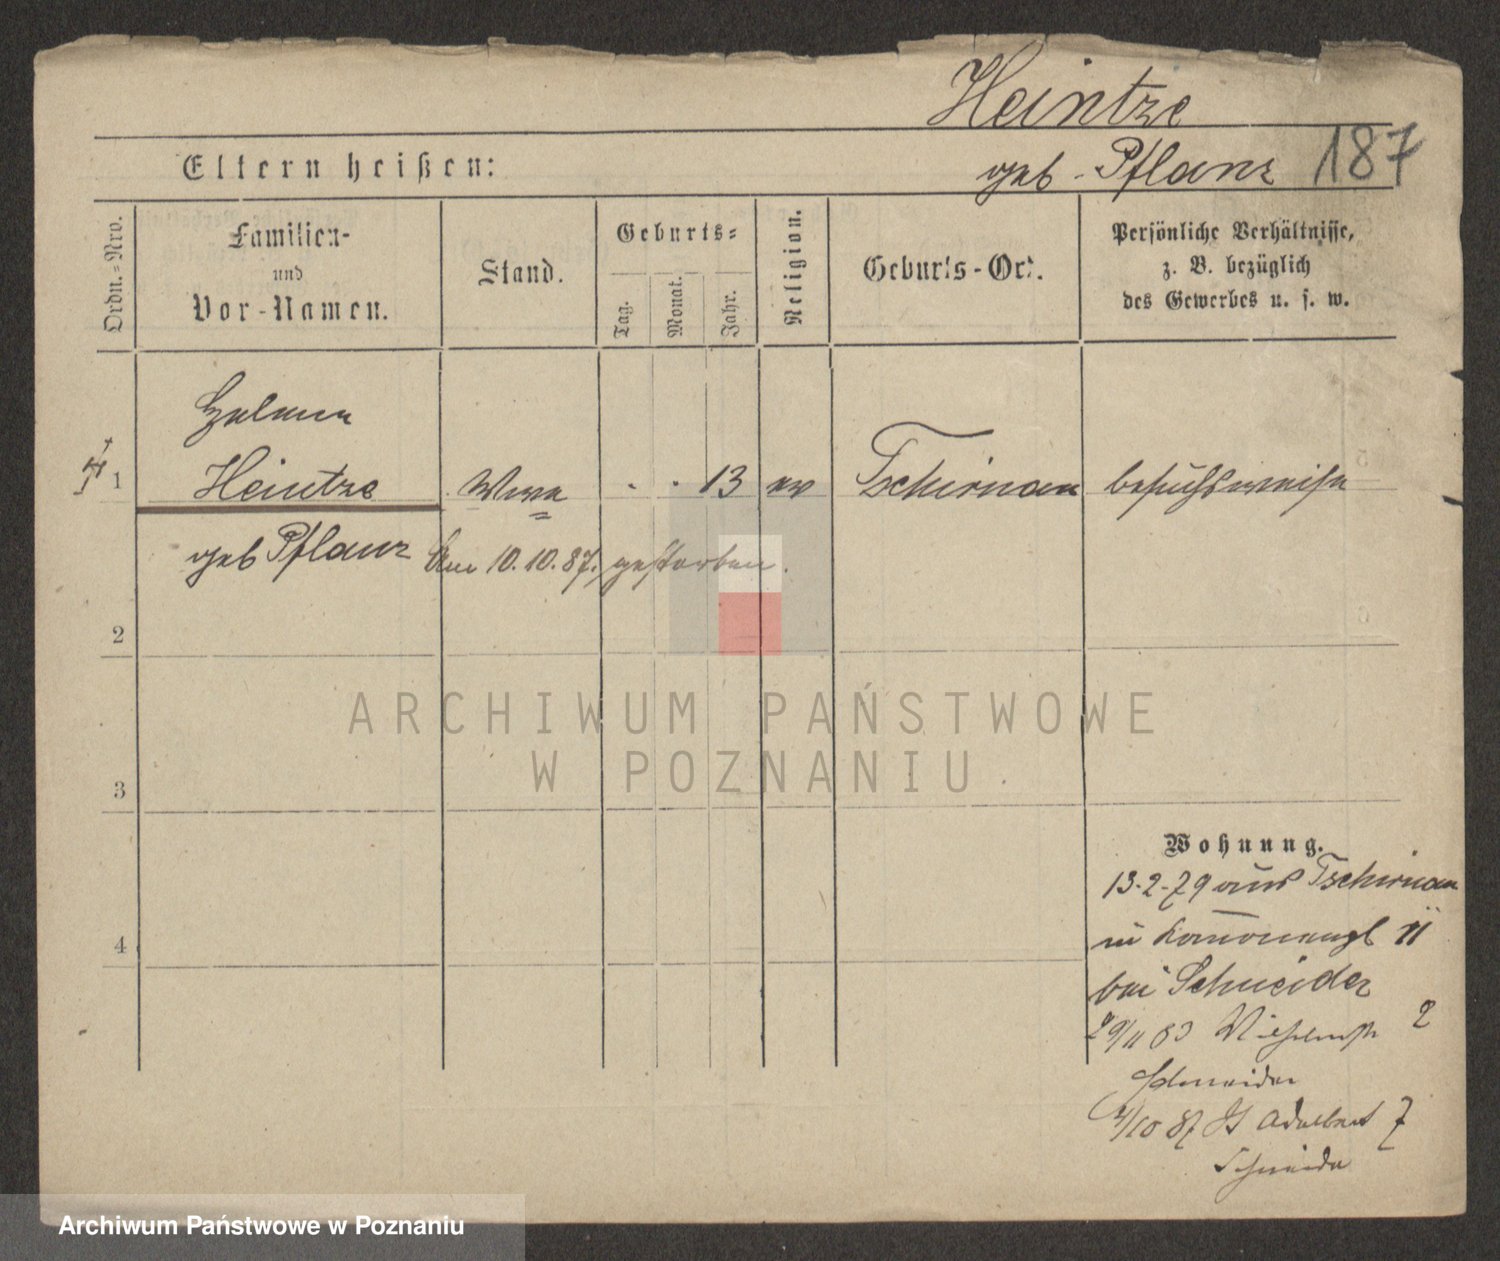 Heintze
geb. Pflanz 187
Eltern heißen:
Ordn.-Nro.
Familien-
und
Vor-Namen.
Stand.
Geburts-
Tag.
Monat.
Jahr.
Religion.
Geburts-Ort.
Persönliche Verhältnisse,
z. B. bezüglich
des Gewerbes u. s. w.
Helene
1 Heintze Wwe . . 13 ev Tschirnau besuchsweise
geb Pflanz Am 10.10.87. gestorben.
2
3
4
Wohnung.
13.2.79 aus Tschirnau
in 11
bei Schneider
29/11 83 2
Schneider
/10 87 St Adalbert 7
Schneider
ARCHIWUM PAŃSTWOWE
W POZNANIU
Archiwum Państwowe w Poznaniu